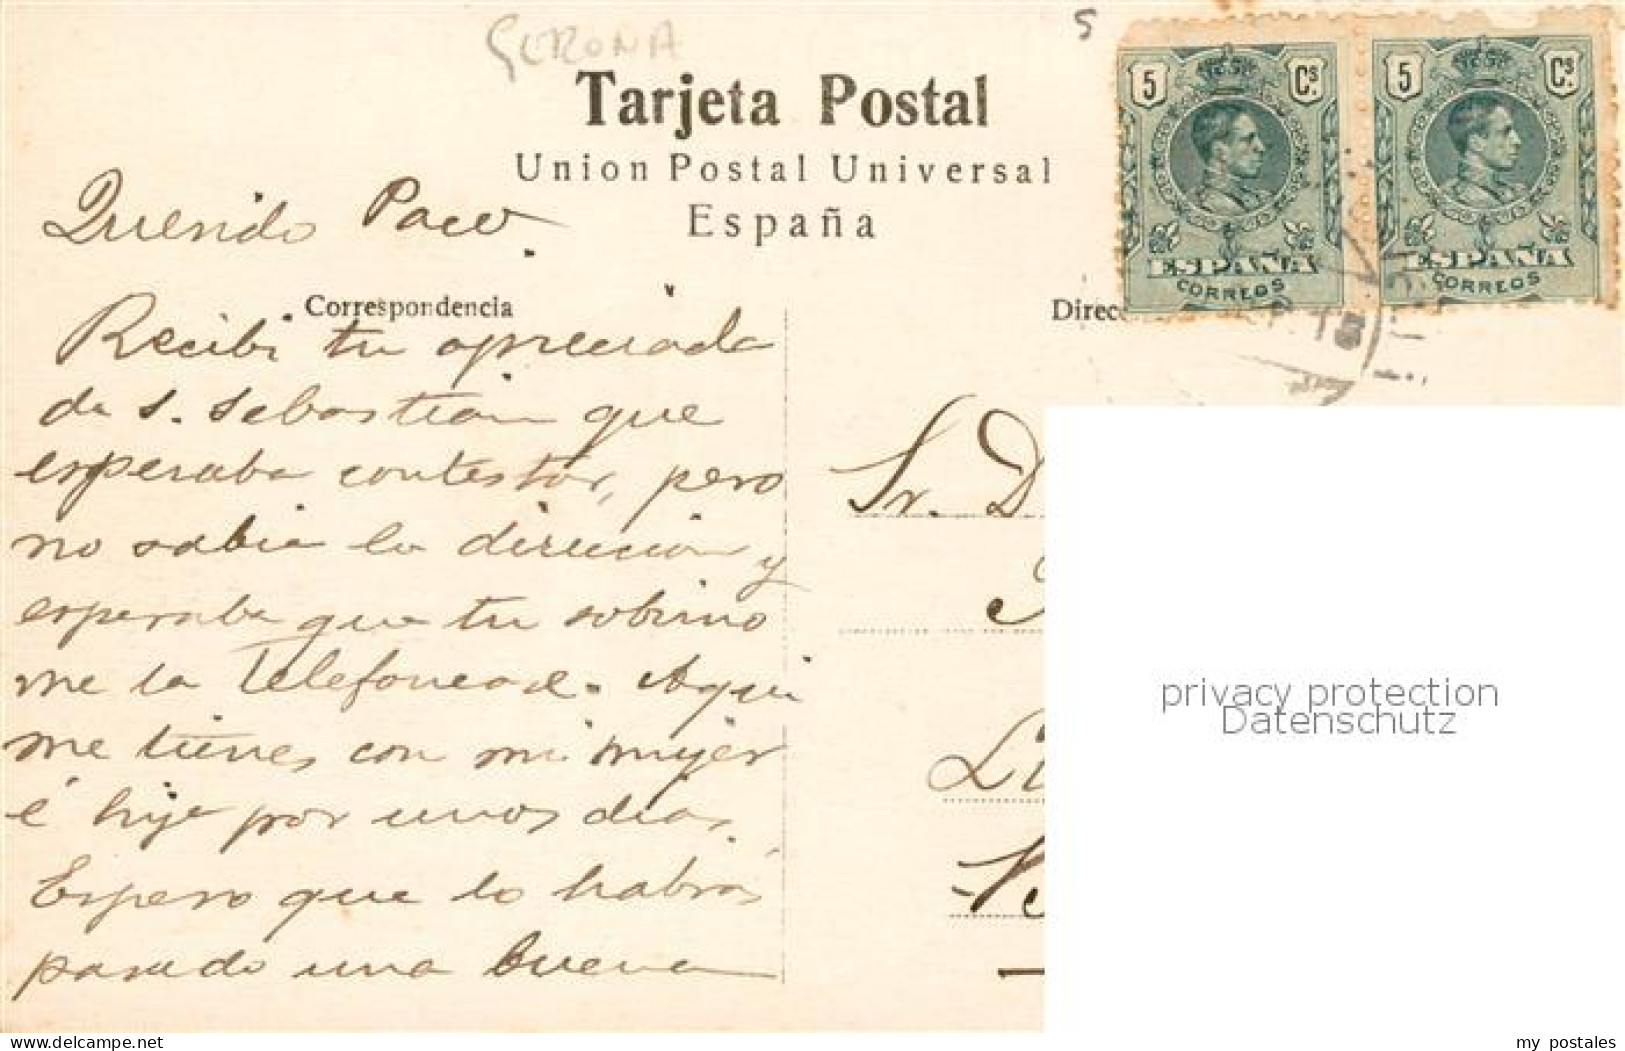 GERONA
5
Tarjeta Postal
Union Postal Universal
España
5 Cs.
ESPAÑA
CORREOS
5 Cs.
ESPAÑA
CORREOS
Correspondencia
Direc
Querido Paco.
Recibi tu apreciada
de S. Sebastian que
esperaba contestar, pero
no sabia la direccion y
esperaba que tu sobrino
me la telefonead. Aqui
me tienes con mi mujer
é hija por unos dias.
Espero que lo habrás
pasado una buena
Sr. D
privacy protection
Datenschutz
delcampe.net
my_postales